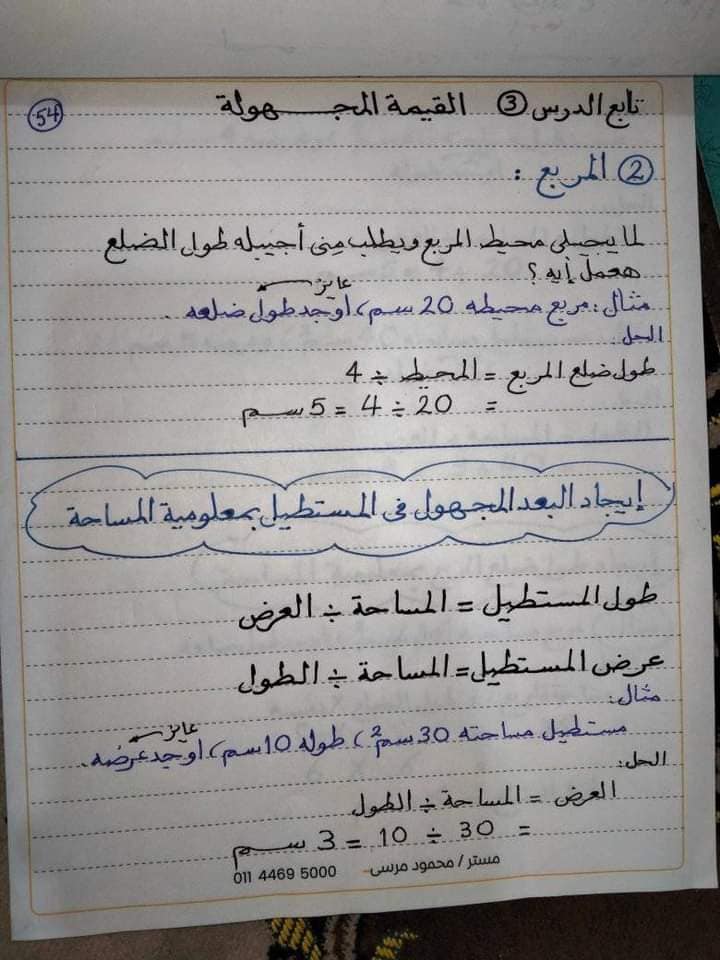 تابع الدرس ③ القيمة المجهولة
54
② المربع :
لما يجيبلى محيط المربع ويطلب منى أجيبله طول الضلع
هعمل إيه ؟
عايز
مثال : مربع محيطه 20 سم، أوجد طول ضلعه .
الحل:
طول ضلع المربع = المحيط ÷ 4
= 20 ÷ 4 = 5 سم
إيجاد البعد المجهول فى المستطيل بمعلومية المساحة
طول المستطيل = المساحة ÷ العرض
عرض المستطيل = المساحة ÷ الطول
مثال:
عايز
مستطيل مساحته 30 سم²، طوله 10 سم، أوجد عرضه .
الحل:
العرض = المساحة ÷ الطول
= 30 ÷ 10 = 3 سم
مستر / محمود مرسى - 011 4469 5000